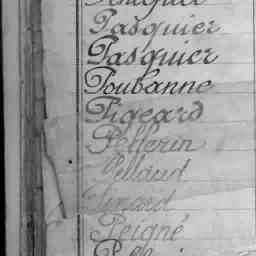 Pasquier
Pasquier
Poubanne
Pigeard
Pellerin
Pellaud
Pinard
Peigné